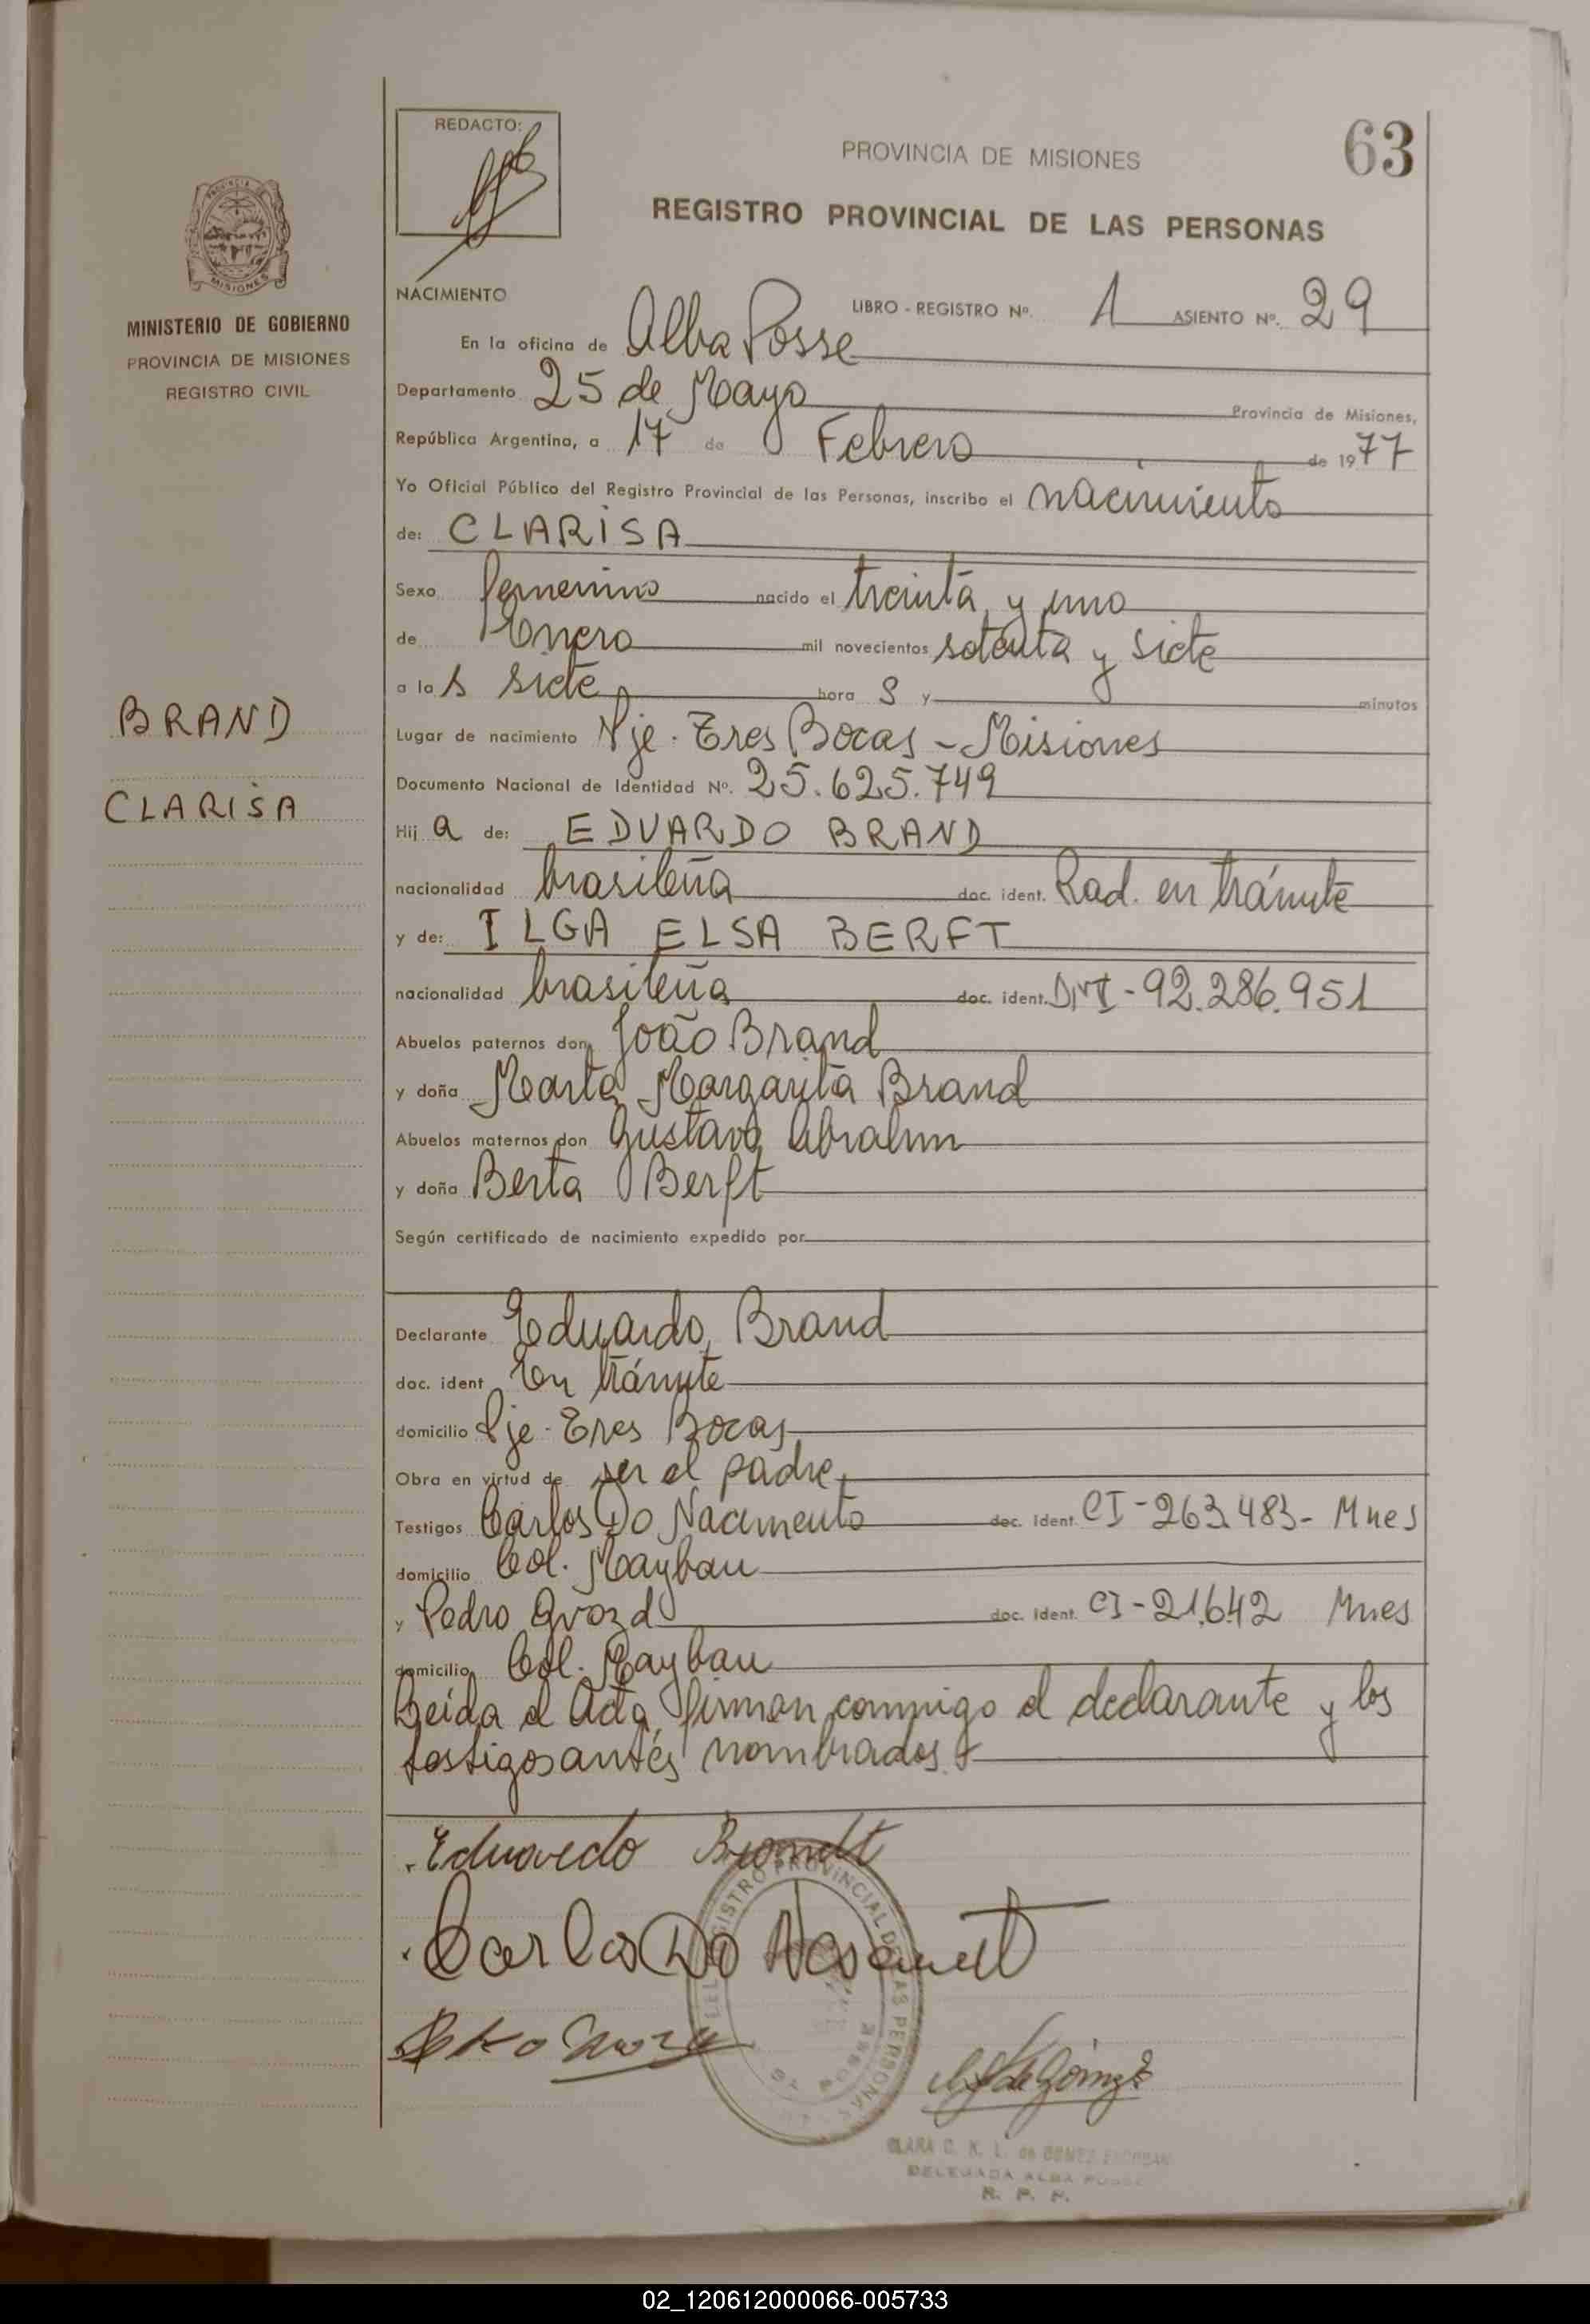 63
REDACTO:
PROVINCIA DE MISIONES
REGISTRO PROVINCIAL DE LAS PERSONAS
MISIONES
MINISTERIO DE GOBIERNO
PROVINCIA DE MISIONES
REGISTRO CIVIL
BRAND
CLARISA
NACIMIENTO LIBRO - REGISTRO Nº. 1 ASIENTO Nº. 29
En la oficina de Alba Posse
Departamento 25 de Mayo Provincia de Misiones,
República Argentina, a 17 de Febrero de 1977
Yo Oficial Público del Registro Provincial de las Personas, inscribo el nacimiento
de: CLARISA
Sexo femenino nacido el treinta y uno
de Enero mil novecientos setenta y siete
a las siete hora s y minutos
Lugar de nacimiento Pje. Tres Bocas - Misiones
Documento Nacional de Identidad Nº. 25.625.749
Hija de: EDUARDO BRAND
nacionalidad brasileña doc. ident. Rad. en trámite
y de: ILGA ELSA BERFT
nacionalidad brasileña doc. ident. DNI - 92.286.951
Abuelos paternos don João Brand
y doña Marta Margarita Brand
Abuelos maternos don Gustavo Abrahm
y doña Berta Berft
Según certificado de nacimiento expedido por
Declarante Eduardo Brand
doc. ident En trámite
domicilio Pje. Tres Bocas
Obra en virtud de ser el padre
Testigos Carlos Do Nacimento doc. ident. CI - 263.483 - Mnes
domicilio Col. Maybau
y Pedro Gvozd doc. ident. CI - 21.642 Mnes
domicilio Col. Maybau
Leída el Acta, firman conmigo el declarante y los
testigos antes nombrados
Eduardo Brandt
Carlos Do
REGISTRO PROVINCIAL DE LAS PERSONAS
CLARA C. K. L. de GOMEZ
DELEGADA ALBA POSSE
R. P. P.
02_120612000066-005733